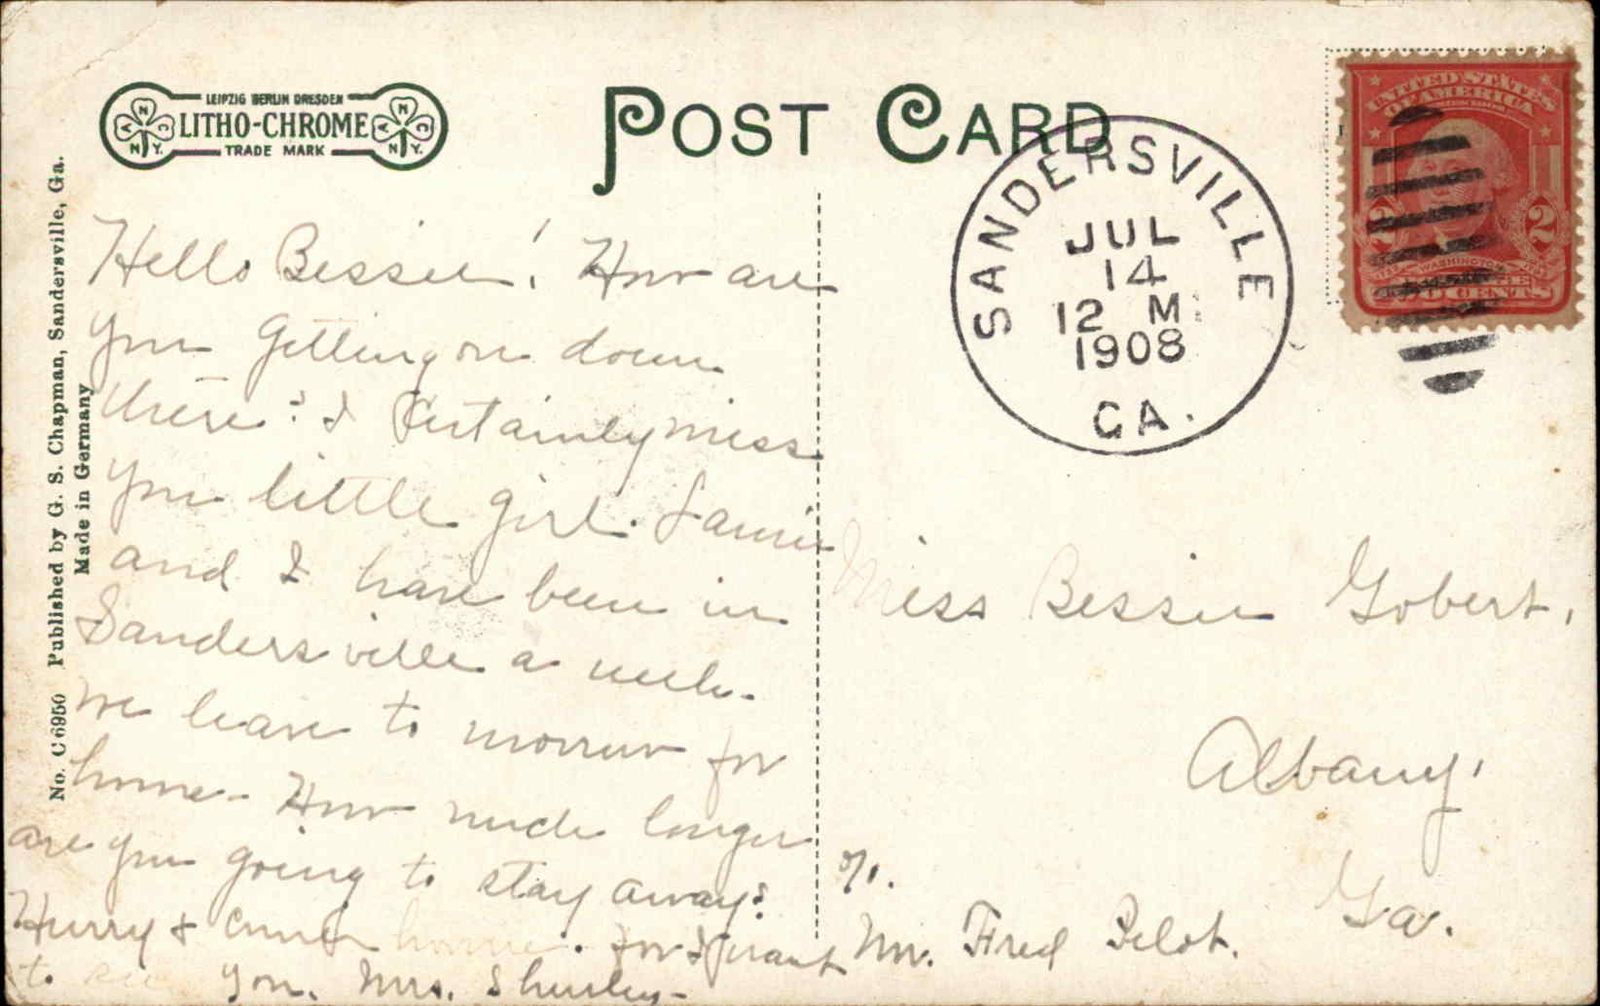 LEIPZIG BERLIN DRESDEN
LITHO-CHROME
TRADE MARK
N N C A N.Y.
N N C A N.Y.
POST CARD
UNITED STATES
OF AMERICA
2 2
WASHINGTON
TWO CENTS
SANDERSVILLE
JUL
14
12 M
1908
GA.
No. C 6950 Published by G. S. Chapman, Sandersville, Ga.
Made in Germany
Hello Bessie! How are
you getting on down
there? I certainly miss
you little girl.
and I have been in
Sandersville a week.
We leave to morrow for
home - How much longer
are you going to stay away?
Hurry & come home. for I want
to see you. Mrs.
Miss Bessie Gobert,
Albany,
Ga.
c/o.
Mr. Fred Pelot.